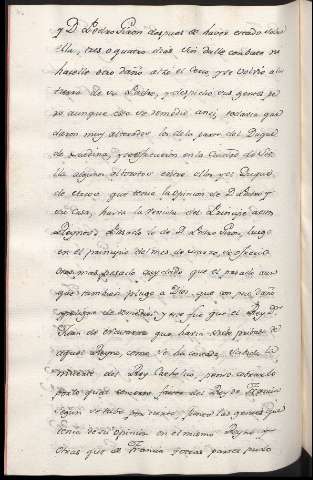 y D. Pedro Giron despues de haver estado sobre
ella, tres o quatro dias sin dalle combate ni
hacelle otro daño alzó el Cerco, y se volvió a la
tierra de su Padre, y despidio sus gentes pe
ro aunque esto se remedió ansi, todavia que
daron muy alterados los de la parte del Duque
de Medina, y en la Ciudad de Sevi
lla algunos alborotos entre ellos y el Duque
de Arcos que tenia la opinion de D. Pedro y
su Casa, hasta la venida del Principe a estos
Reynos. Pasado lo de D. Pedro Giron, luego
en el principio del mes de Marzo, se ofreció
otro mas pesado cuydado que el pasado aun
que tambien plugo a Dios, que con poco daño
se remedió y este fue que el Rey Dn
Juan de que havia sido privado de
aquel Reyno, como se ha contado, sabida la
muerte del Rey Catholico, pensó cobrarle
por lo qual con favor del Rey de Francia
segun se tubo por cierto, juntó las gentes que
tenia de su opinion en el mismo Reyno y
otras que de Francia y otras partes pudo